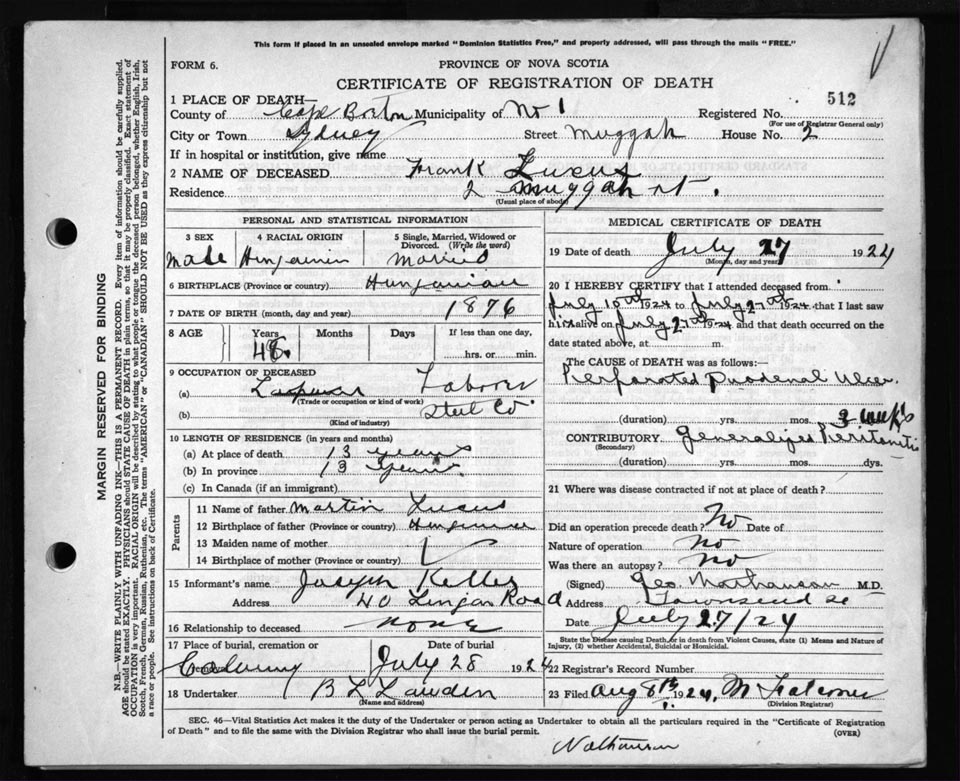 This form if placed in an unsealed envelope marked "Dominion Statistics Free," and properly addressed, will pass through the mails "FREE."
FORM 6.
PROVINCE OF NOVA SCOTIA
CERTIFICATE OF REGISTRATION OF DEATH
512
1 PLACE OF DEATH—
County of Cape Breton Municipality of No 1 Registered No.
(For use of Registrar General only)
City or Town Sydney Street Muggah House No. 2
If in hospital or institution, give name
2 NAME OF DECEASED Frank Lucus
Residence 2 Muggah st.
(Usual place of abode)
PERSONAL AND STATISTICAL INFORMATION
3 SEX 4 RACIAL ORIGIN 5 Single, Married, Widowed or Divorced. (Write the word)
male
6 BIRTHPLACE (Province or country)
7 DATE OF BIRTH (month, day and year) 1876
8 AGE Years Months Days If less than one day,
48 hrs. or min.
9 OCCUPATION OF DECEASED
(a) Laborer
(Trade or occupation or kind of work)
(b) Steel Co
(Kind of industry)
10 LENGTH OF RESIDENCE (in years and months)
(a) At place of death 13 years
(b) In province 13 years
(c) In Canada (if an immigrant)
Parents
11 Name of father Martin Lucus
12 Birthplace of father (Province or country)
13 Maiden name of mother
14 Birthplace of mother (Province or country)
15 Informant's name Joseph Keller
Address 40 Lingan Road
16 Relationship to deceased none
17 Place of burial, cremation or Date of burial
July 28 1924
18 Undertaker B L
(Name and address)
MEDICAL CERTIFICATE OF DEATH
19 Date of death July 27 1924
(Month, day and year)
20 I HEREBY CERTIFY that I attended deceased from
July 10th 1924 to July 27th 1924 that I last saw
him alive on July 27th 1924 and that death occurred on the
date stated above, at m.
The CAUSE of DEATH was as follows:—
Perforated Duodenal Ulcer.
(duration) yrs. mos. weeks
CONTRIBUTORY Generalized Peritonitis
(Secondary)
(duration) yrs. mos. dys.
21 Where was disease contracted if not at place of death?
Did an operation precede death? No Date of
Nature of operation no
Was there an autopsy? No
(Signed) Geo. Nathanson M.D.
Address Townsend St
Date July 27/24
State the Disease causing Death, or in death from Violent Causes, state (1) Means and Nature of
Injury, (2) whether Accidental, Suicidal or Homicidal.
22 Registrar's Record Number
23 Filed Aug 8th 1924, M Falconer
(Division Registrar)
SEC. 46—Vital Statistics Act makes it the duty of the Undertaker or person acting as Undertaker to obtain all the particulars required in the "Certificate of Registration
of Death" and to file the same with the Division Registrar who shall issue the burial permit.
(OVER)
Nathanson
MARGIN RESERVED FOR BINDING
N.B.—WRITE PLAINLY WITH UNFADING INK—THIS IS A PERMANENT RECORD. Every item of information should be carefully supplied.
AGE should be stated EXACTLY. PHYSICIANS should STATE CAUSE OF DEATH in plain terms, so that it may be properly classified. Exact statement of
OCCUPATION is very important. RACIAL ORIGIN will be described by stating to what people or tongue the deceased person belonged, whether English, Irish,
Scotch, French, German, Russian, Ruthenian, etc. The terms "AMERICAN" or "CANADIAN" SHOULD NOT BE USED as they express citizenship but not
a race or people. See instructions on back of Certificate.